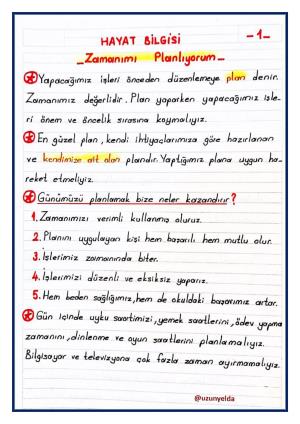 HAYAT BİLGİSİ
-1-
Zamanımı Planlıyorum
Yapacağımız işleri önceden düzenlemeye plan denir.
Zamanımız değerlidir. Plan yaparken yapacağımız işle-
ri önem ve öncelik sırasına koymalıyız.
En güzel plan, kendi ihtiyaçlarımıza göre hazırlanan
ve kendimize ait olan plandır. Yaptığımız plana uygun ha-
reket etmeliyiz.
Günümüzü planlamak bize neler kazandırır?
1. Zamanımızı verimli kullanmış oluruz.
2. Planını uygulayan kişi hem başarılı hem mutlu olur.
3. İşlerimiz zamanında biter.
4. İşlerimizi düzenli ve eksiksiz yaparız.
5. Hem beden sağlığımız, hem de okuldaki başarımız artar.
Gün içinde uyku saatimizi, yemek saatlerini, ödev yapma
zamanını, dinlenme ve oyun saatlerini planlamalıyız.
Bilgisayar ve televizyona çok fazla zaman ayırmamalıyız.
@uzunyelda